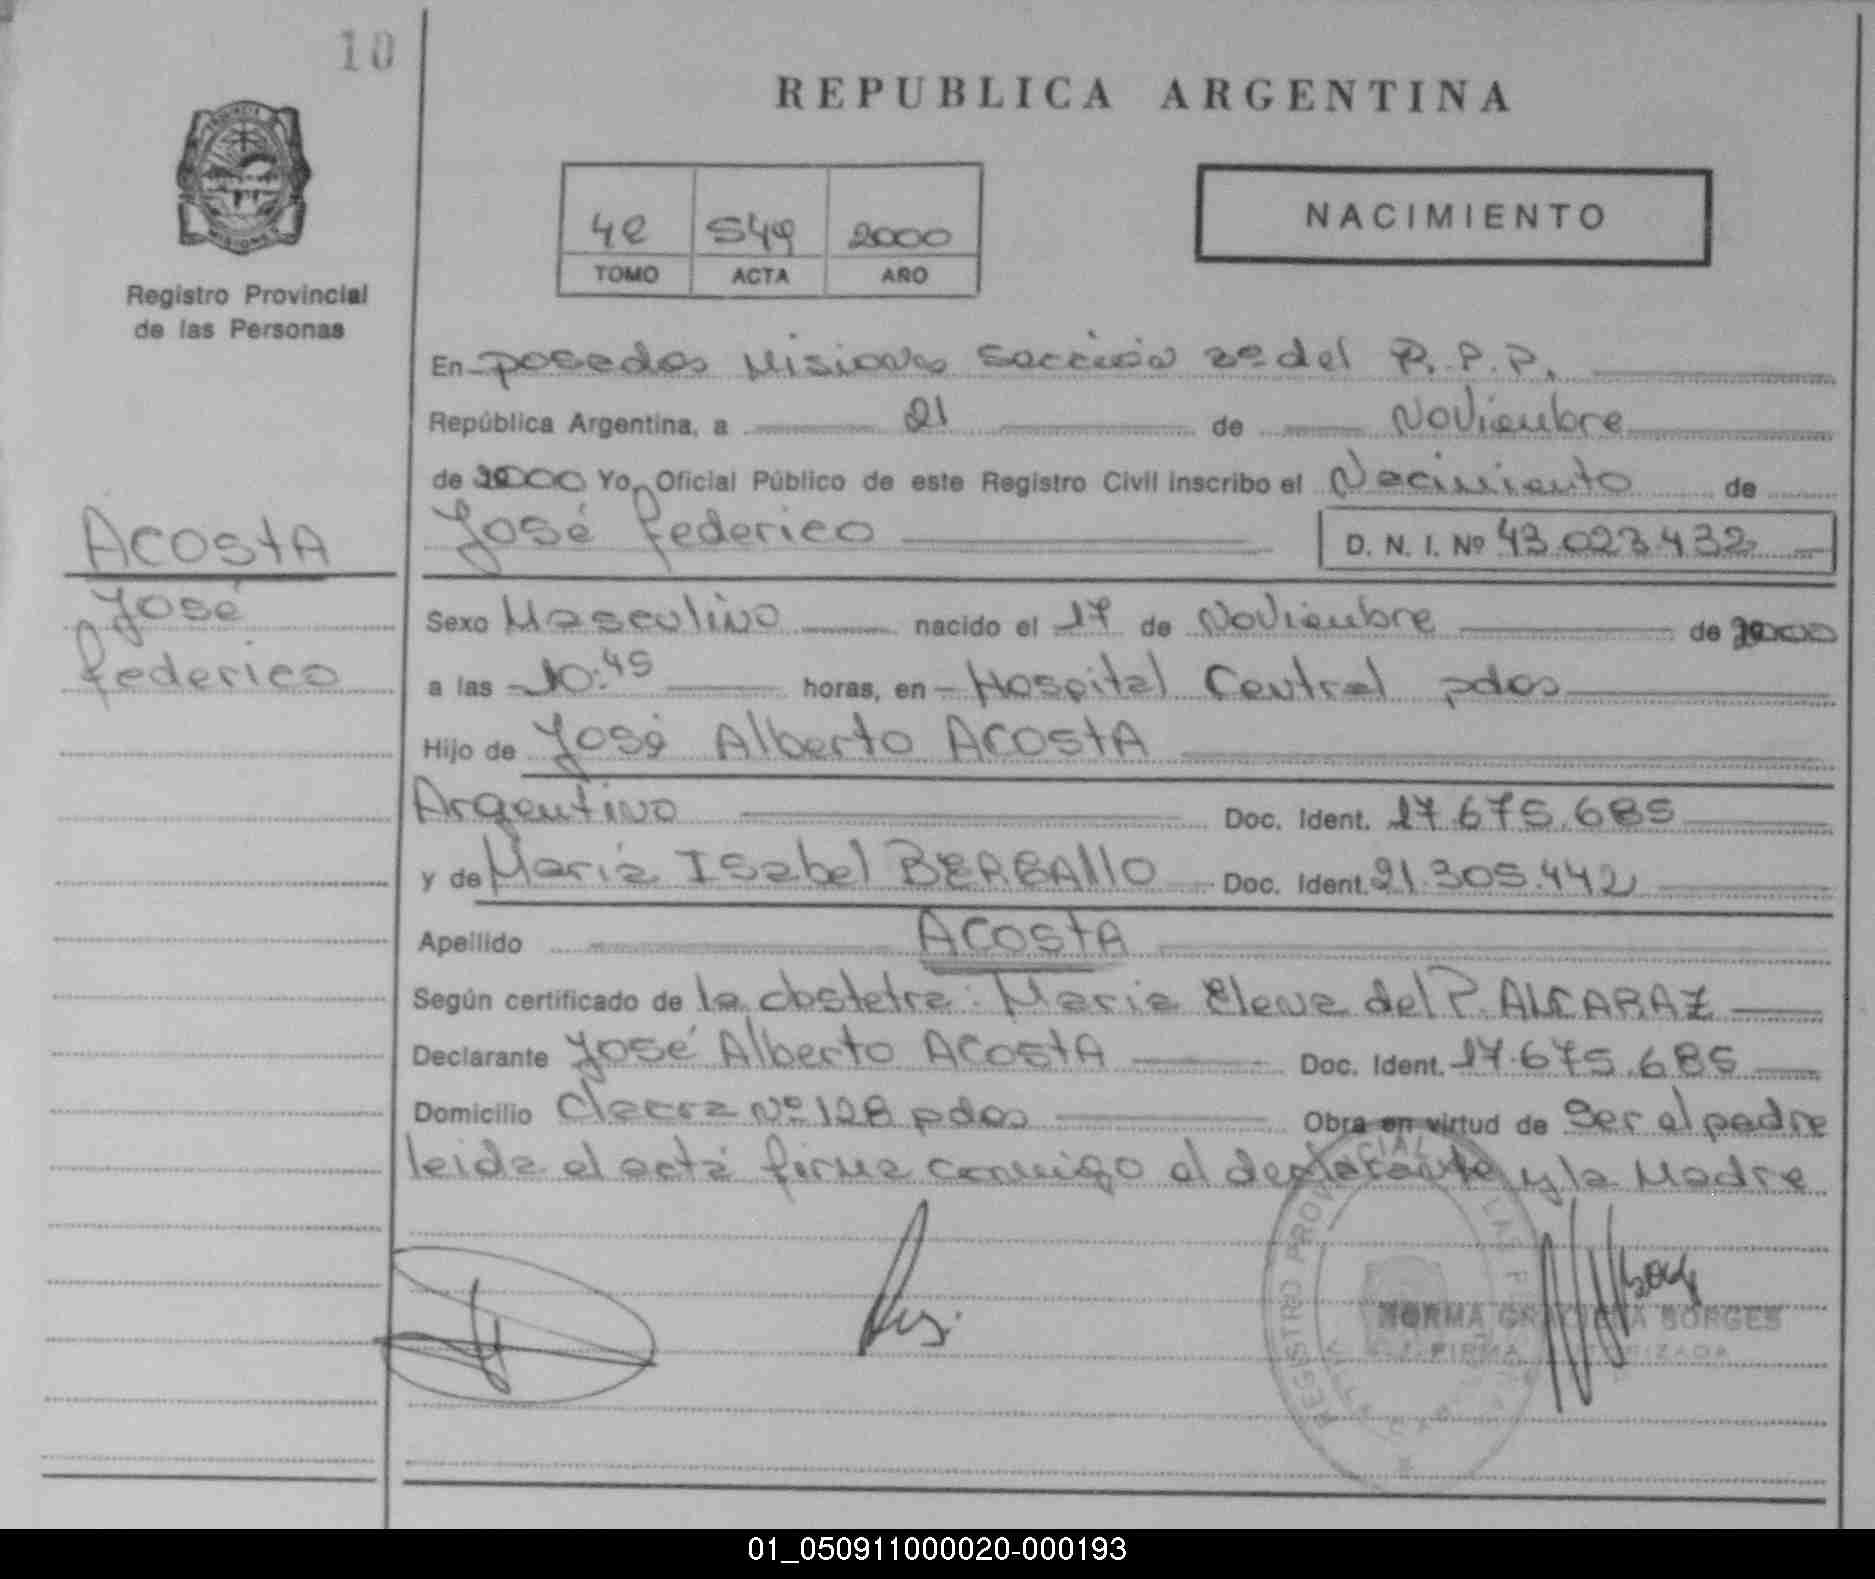 10
REPUBLICA ARGENTINA
PROVINCIA
MISIONES
4e 549 2000
TOMO ACTA AÑO
NACIMIENTO
Registro Provincial
de las Personas
En posadas Misiones Sección 2º del R.P.P.
República Argentina, a 21 de Noviembre
de 2000 Yo, Oficial Público de este Registro Civil inscribo el Nacimiento de
José federico D. N. I. Nº 43.023.432
ACOStA
José
federico
Sexo Masculino nacido el 17 de Noviembre de 2000
a las 10:45 horas, en Hospital Central pdas
Hijo de José Alberto ACOStA
Argentino Doc. Ident. 17.675.685
y de María ISabel BERBAllO Doc. Ident. 21.305.442
Apellido ACOStA
Según certificado de la obstetra: Maria Elena del P. ALCARAZ
Declarante José Alberto ACOStA Doc. Ident. 17.675.685
Domicilio Chacra Nº 128 pdas Obra en virtud de Ser el padre
leida el acta firma conmigo el declarante y la Madre
REGISTRO PROVINCIAL LAS
NORMA GRACIELA BORGES
FIRMA AUTORIZADA
01_050911000020-000193